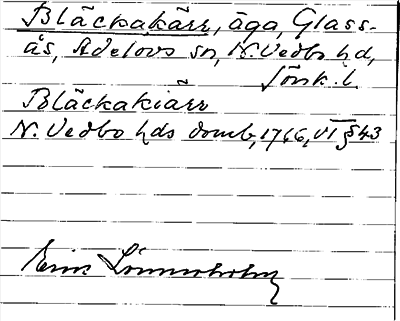 Bläckakärr, äga, Glass-
ås, Adelövs sn, N. Vedbo hd,
Jönk. l.
Bläckakiärr
N. Vedbo hds domb, 1766, VI § 43
Erik Linnerholm